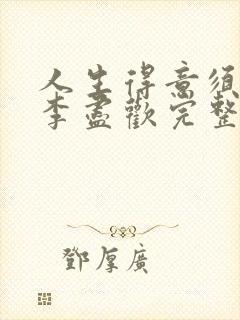 人生得意須
李盡歡完整
鄧厚廣